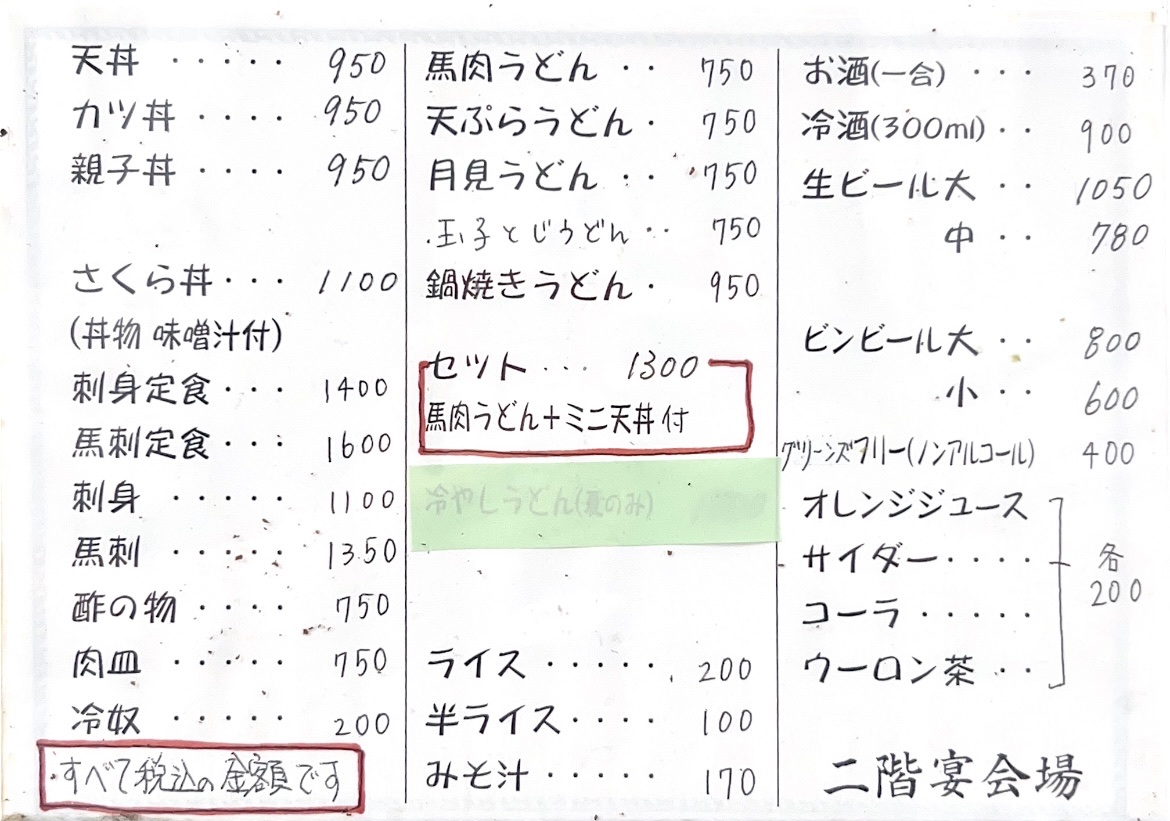 天丼 ・・・・・ 950
カツ丼 ・・・・ 950
親子丼 ・・・・ 950
さくら丼・・・ 1100
(丼物 味噌汁付)
刺身定食・・・ 1400
馬刺定食・・・ 1600
刺身 ・・・・・ 1100
馬刺 ・・・・・ 1350
酢の物 ・・・・ 750
肉皿 ・・・・・ 750
冷奴 ・・・・・ 200
すべて税込の金額です
馬肉うどん ・・ 750
天ぷらうどん・ 750
月見うどん ・・ 750
玉子とじうどん・・ 750
鍋焼きうどん・ 950
セット・・・ 1300
馬肉うどん+ミニ天丼付
冷やしうどん(夏のみ)
ライス・・・・・ 200
半ライス・・・・ 100
みそ汁・・・・・ 170
お酒(一合) ・・・ 370
冷酒(300ml)・・ 900
生ビール大 ・・ 1050
中 ・・ 780
ビンビール大 ・・ 800
小 ・・ 600
グリーンズフリー(ノンアルコール) 400
オレンジジュース
サイダー・・・・
コーラ ・・・・・
ウーロン茶 ・・
各
200
二階宴会場